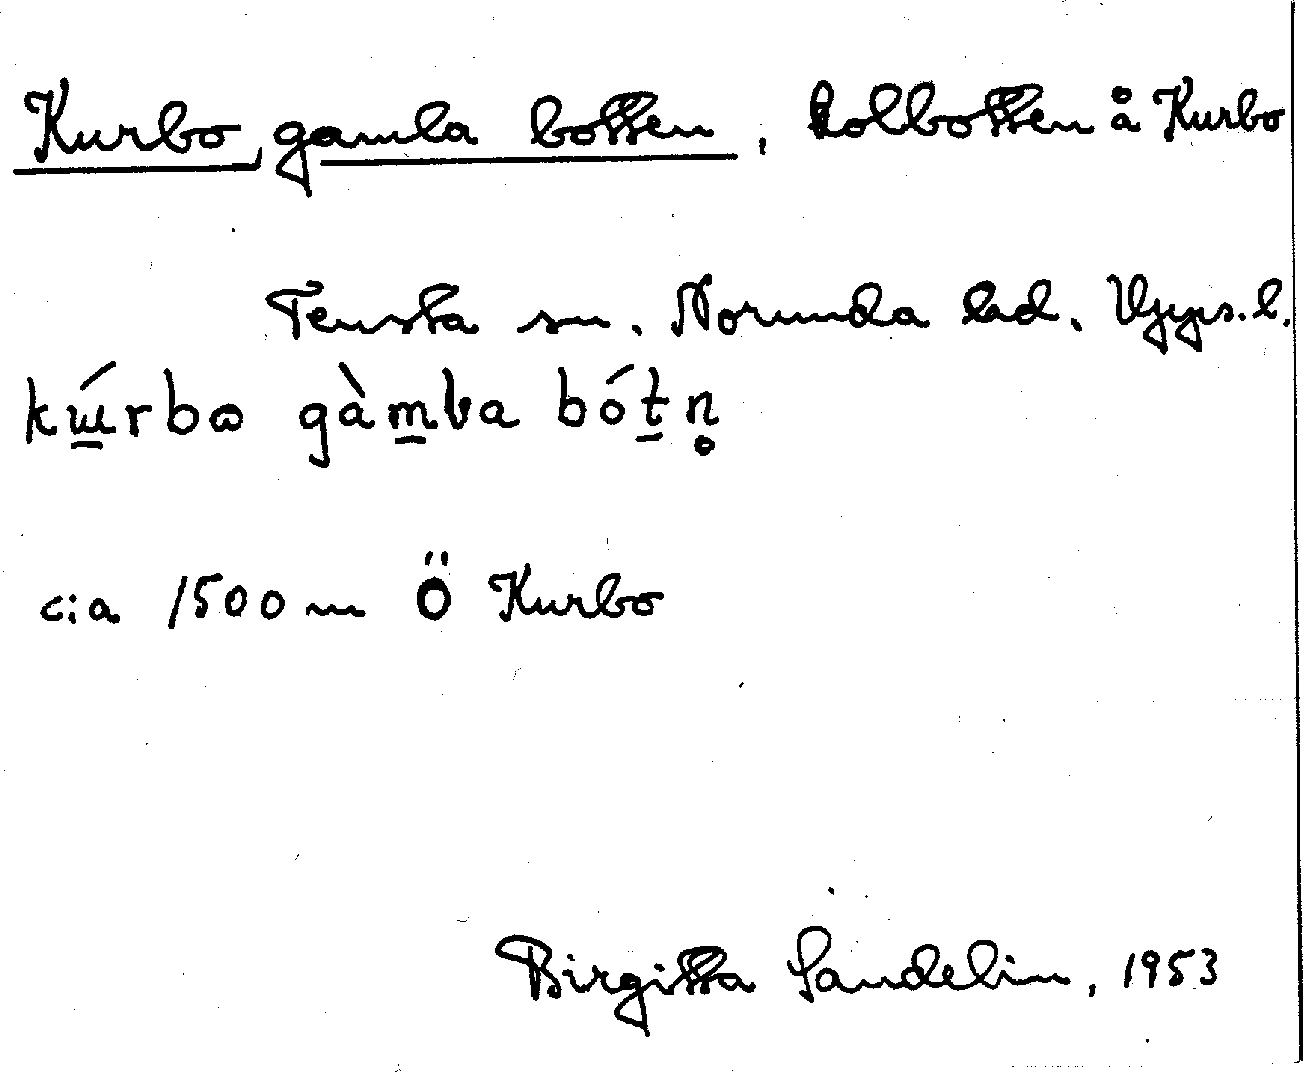 Kurbo, gamla botten, kolbotten å Kurbo
Tensta sn. Norunda hd. Upps. l.
kɯ́rbɷ gàmɫa bótn̥
c:a 1500 m Ö Kurbo
Birgitta Sandelin, 1953